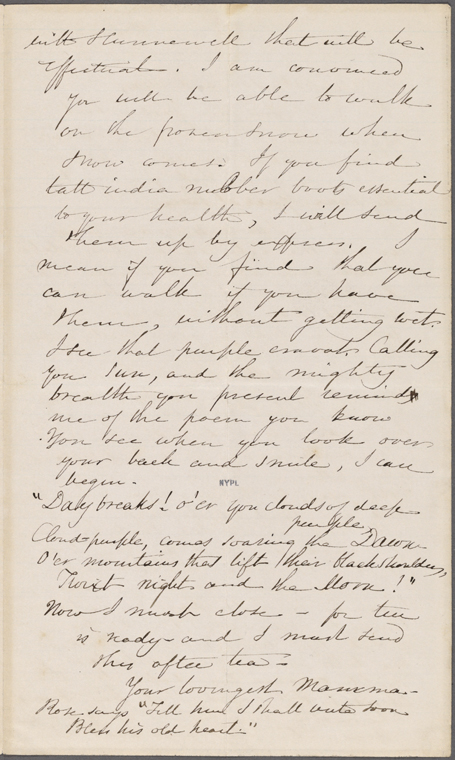 with Hunnewell that will be
effectual. I am convinced
you will be able to walk
on the frozen snow when
snow comes. If you find
tall india rubber boots essential
to your health, I will send
them up by express. I
mean if you find that you
can walk if you have
them, without getting wet.
I see that purple cravat. Calling
you Sun, and the mighty
breadth you present reminds
me of the poem you know
You see when you look over
your back and smile, I can
begin.
NYPL
"Day breaks! o'er you clouds of deep
purple
Cloud purple, comes soaring the Dawn
O'er mountains that lift their black shoulders,
Twixt night and the Moon!"
Now I must close – for tea
is ready – and I must send
this after tea –
Your lovingest Mamma –
Rose says "Tell him I shall write soon
Bless his old heart."